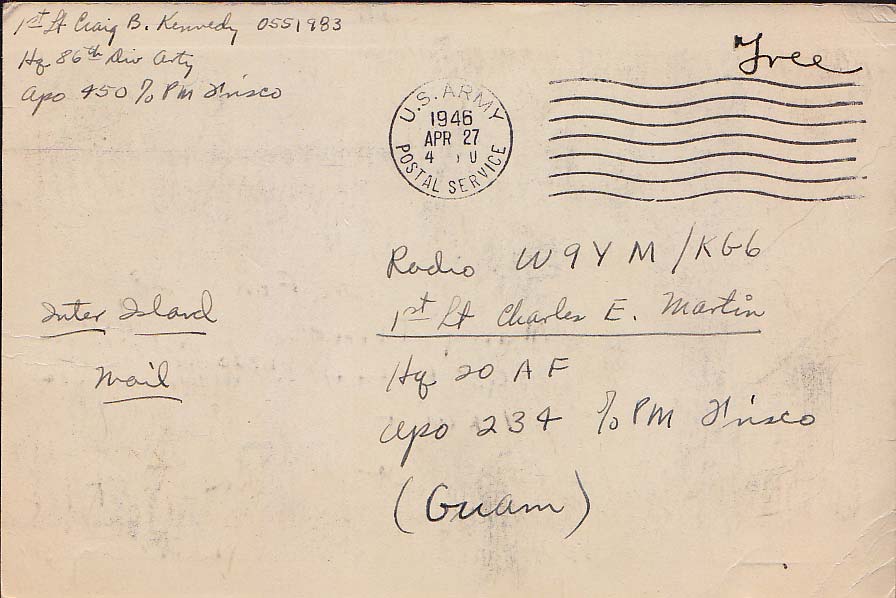 1st Lt Craig B. Kennedy 0551983
Hq 86th Div Arty
Apo 450 c/o PM Frisco
Free
U.S. ARMY
1946
APR 27
4 U
POSTAL SERVICE
Radio W9YM/KG6
1st Lt Charles E. Martin
Inter Island
Mail
Hq 20 AF
Apo 234 c/o PM Frisco
(Guam)